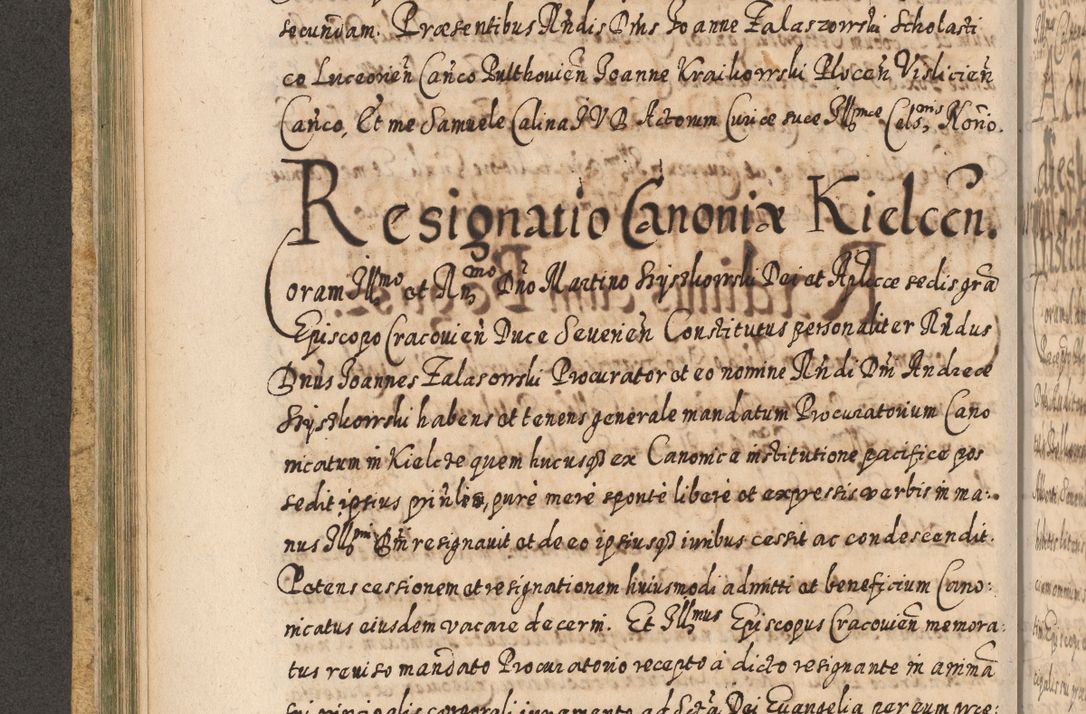 secundam. Præsentibus Rñdis Dnis Joanne Zalaszowski Scholasti
co Luceorieñ Cañco Pulthovieñ Joanne Kraikowski Ploceñ Vislicieñ
Cañco, Et me Samuele Calina JVD Actorum Curiæ suæ Illmæ Celsnis Norio.
Resignatio Canoniæ Kielceñ.
Coram Illmo et Rñmo Dño Martino Szyszkowski Dei et Aplicæ sedis grã
Episcopo Cracovieñ Duce Severieñ Constitutus personaliter Rñdus
Dnus Joannes Zalasowski Procurator et eo nomine Rñdi Dñi Andreæ
Szyszkowski habens et tenens generale mandatum Procuratorium Cano
nicatum in Kielcze quem hucusq ex Canonica institutione pacifice pos
sedit ipsius prinlis, purè merè spontè liberè et expressis verbis in ma
nus Illmi Dñi resignavit et de eo ipsiusq iuribus cessit ac condescendit.
Petens cessionem et resignationem huiusmodi admitti et beneficium Cano:
nicatus eiusdem vacare decerni. Et Illmus Episcopus Cracovieñ memora
tus reviso mandato Procuratorio recepto à dicto resignante in animã
sui principalis corporali iuramento ad Sctã Dei Evangelia per eum præ: